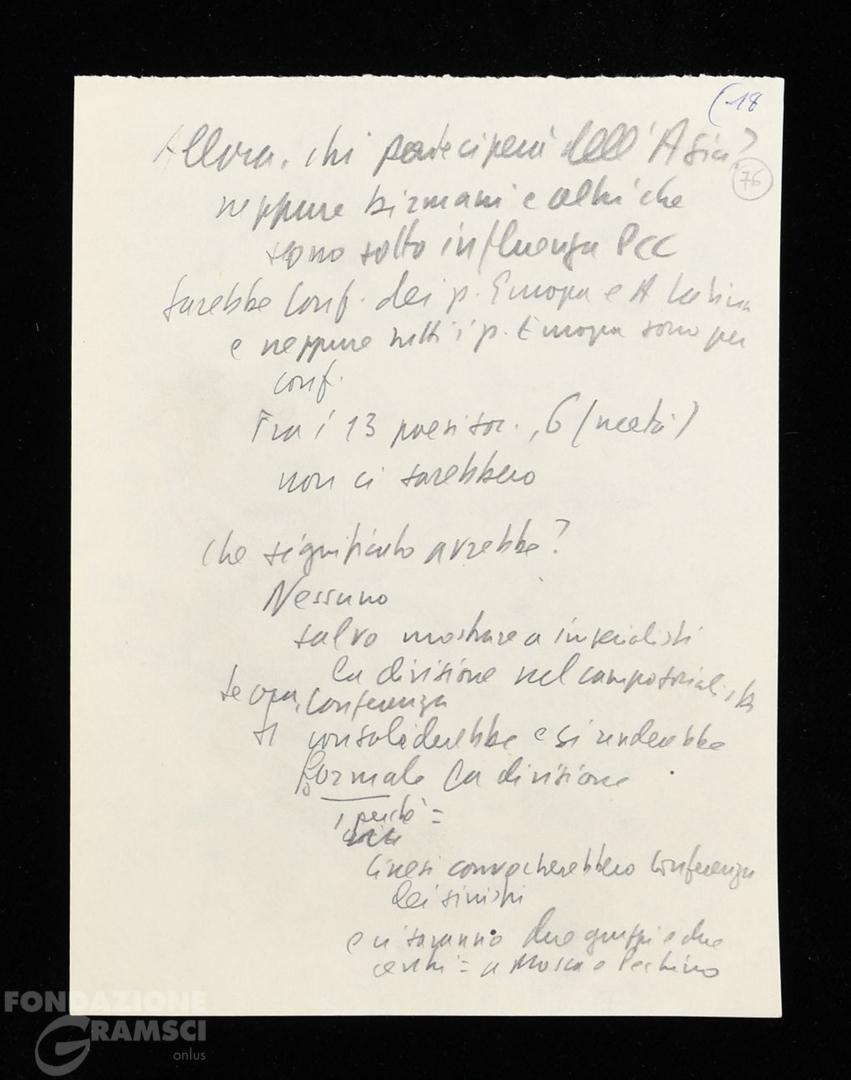 (18
Allora, chi parteciperà dell'Asia?
76
neppure birmani e altri che
sono sotto influenza PCC
sarebbe Conf. dei p. Europa e A Latina
e neppure tutti i p. Europa sono per
conf.
Fra i 13 paesi soc., 6 (metà)
non ci sarebbero
Che significato avrebbe?
Nessuno
salvo mostrare a imperialisti
la divisione nel campo socialista
se ora, Conferenza
si consoliderebbe e si renderebbe
formale la divisione
perché =
Cinesi convocherebbero Conferenza
dei sinistri
e vi saranno due gruppi e due
centri = a Mosca e Pechino
FONDAZIONE
GRAMSCI
onlus